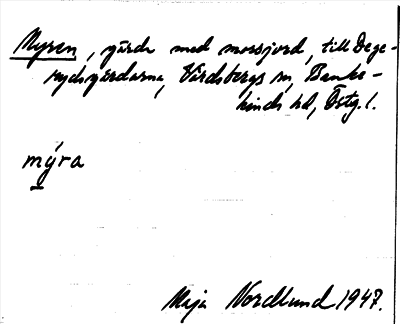 Myren, gärde med mossjord, till Dege-
rydsgårdarna, Vårdsbergs sn, Banke-
kinds hd, Östg. l.
mýra
I
Maja Nordlund 1947.